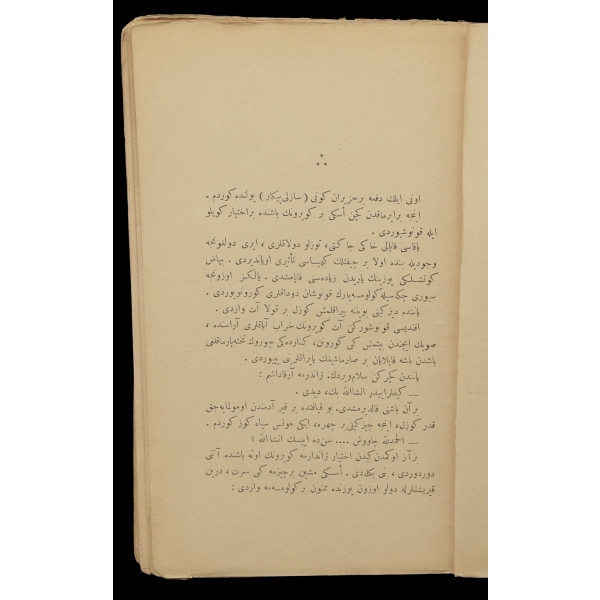 اونی ایلك دفعه بر حزیران كونی ( سازلی پیكار ) یولنده كوردم .
اینجه بر ایرماقدن كچن أسكی بر كوپرونك باشنده بر اختیار كویلو
ایله قونوشیوردی .
یاقاسی قاپالی خاكی جاكتی ، توزلو دولاقلری ، ایری دولغونجه
وجودیله بنده اولا بر چیفتلك كهیاسی تأثیری اویاندیردی . بیاض
كونشلكی یوزینك یاریدن زیاده‌سنی قاپامشدی . یالكز اوزونجه
سیوری چكه‌سیله كولومسه‌یه‌رك قونوشان دوداقلری كورونویوردی .
یاننده دیزكینی بویننه بیراقلمش كوزل بر قولا آت واردی .
افندیسی قونوشوركن آت كوپرونك خراب آیاقلری آراسنده ،
صویك ایچندن بیتمش كبی كورونن ، كنارده‌كی چوروك تخته‌پارماقلغی
باشدن باشه قاپلایان بر صارماشیغك یاپراقلرینی یییوردی .
یانندن كچركن سلام ویردك . ژاندرمه آرقاداشم :
— كیفلر اییدر انشاالله بك ، دیدی .
بر آن باشنی قالدیرمشدی . بو قیافتده بر قیر آدمندن اومولمایه‌جق
قدر كوزل ، اینجه چیزكیلی بر چهره ، ایكی مونس سیاه كوز كوردم .
— الحمدلله چاووش .... سن‌ده اییسك انشاالله ؛
بر آز اوكمدن كیدن اختیار ژاندارمه كوپرونك اوته باشنده آتنی
دوردوردی ، بنی بكله‌دی . أسكی مشین بر چیزمه كبی سرت ، درین
قیریشقلرله دولو اوزون یوزنده ممنون بر كولومسه‌مه واردی :